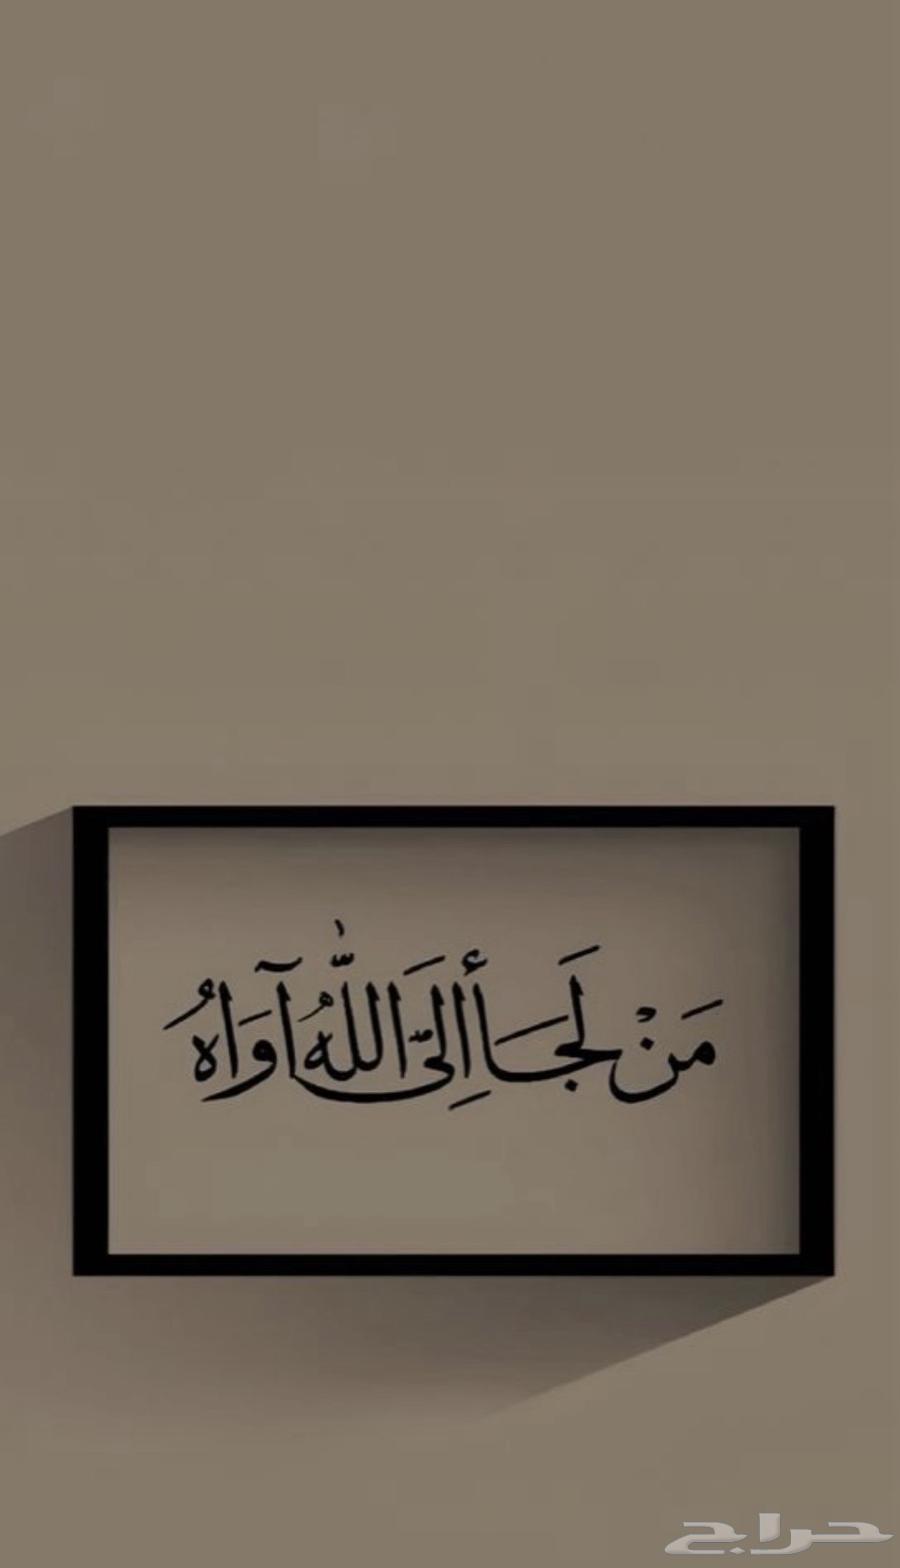 مَنْ لَجَأَ إِلَىَ اللَّهُ آوَاهُ
حراج